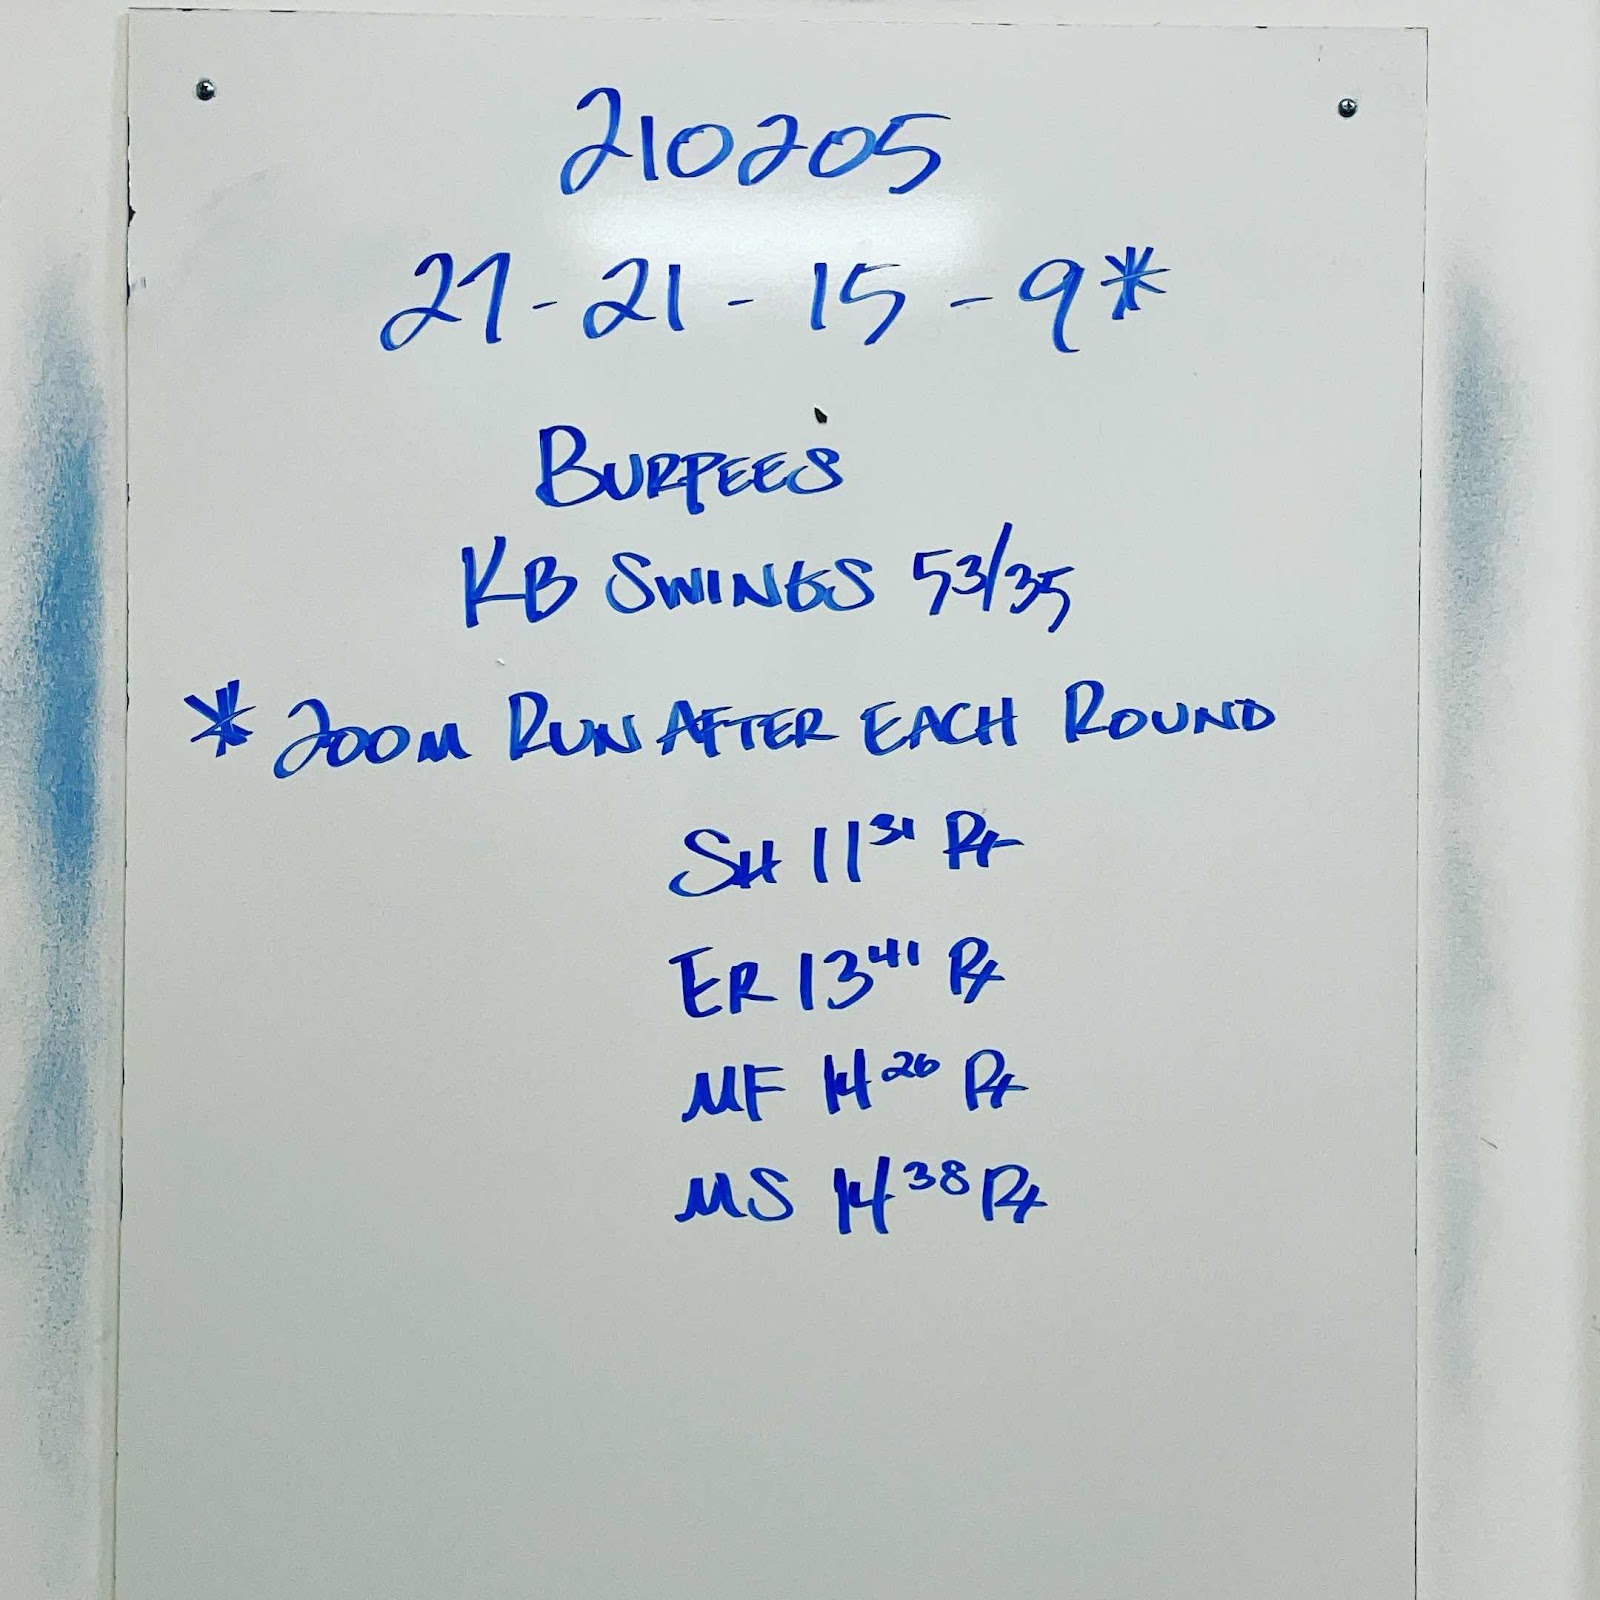 210205
27 - 21 - 15 - 9*
BURPEES
KB SWINGS 53/35
* 200M RUN AFTER EACH ROUND
SH 11 31 Rx
ER 13 41 Rx
MF 14 26 Rx
MS 14 38 Rx